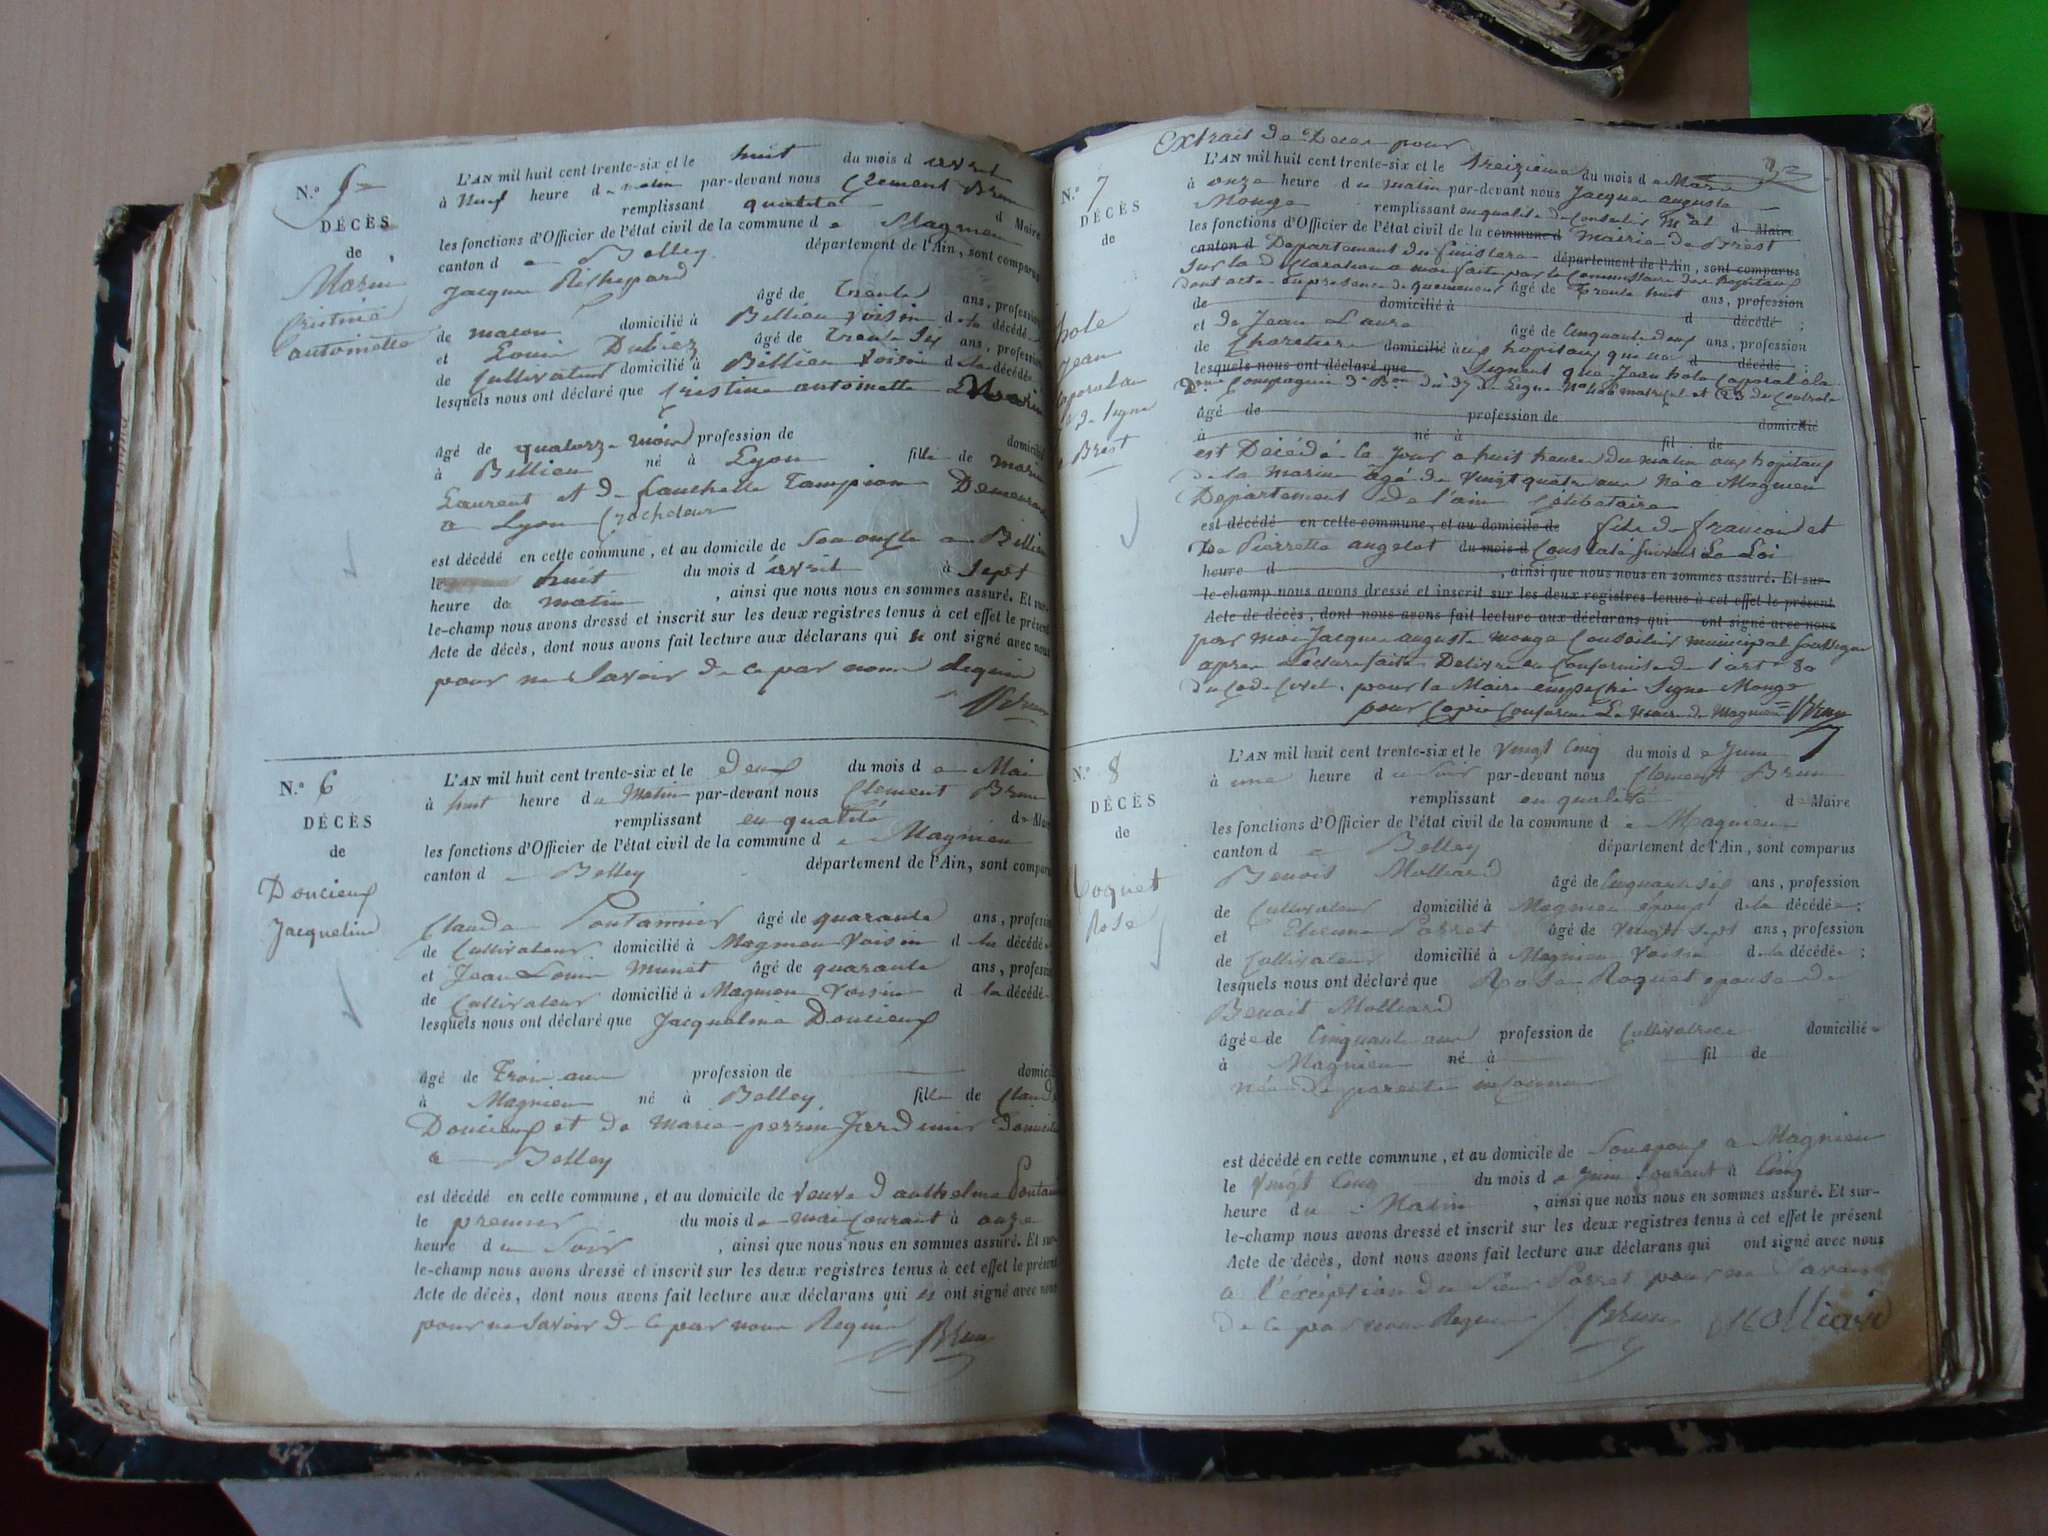 N.° 5
DÉCÈS
de
Marin
Cristine
antoinette
L'AN mil huit cent trente-six et le huit du mois d avril
à Neuf heure du matin par-devant nous Clement Brun
remplissant qualité d Maire
les fonctions d'Officier de l'état civil de la commune d e Magnieu
canton d e Belley département de l'Ain, sont comparus
Jacque
âgé de Trente ans, profession
de macon domicilié à Billieu voisin d la décédée
et Louis Dubiez âgé de Trente six ans, profession
de Cultivateur domicilié à Billieu voisin d la décédée
lesquels nous ont déclaré que Cristine antoinette Marin
âgé de quatorze mois profession de domicilié
à Billieu né à Lyon fille de marin
Laurent et de Tampion Demeurant
a Lyon
est décédé en cette commune, et au domicile de Son oncle a Billieu
le huit du mois d avril à Sept
heure de matin, ainsi que nous nous en sommes assuré. Et sur-
le-champ nous avons dressé et inscrit sur les deux registres tenus à cet effet le présent
Acte de décès, dont nous avons fait lecture aux déclarans qui n ont signé avec nous
pour ne Savoir de ce par nous Requis
Brun
N.° 6
DÉCÈS
de
Doucieux
Jacqueline
L'AN mil huit cent trente-six et le deux du mois d e Mai
à huit heure du Matin par-devant nous Clement Brun
remplissant en qualité de Maire
les fonctions d'Officier de l'état civil de la commune d e Magnieu
canton d e Belley département de l'Ain, sont comparus
Claude Pontannier âgé de quarante ans, profession
de Cultivateur domicilié à Magnieu Voisin d la décédée
et Jean Louis Munet âgé de quarante ans, profession
de Cultivateur domicilié à Magnieu Voisin d la décédée
lesquels nous ont déclaré que Jacqueline Doucieux
âgé de Trois ans profession de domicilié
à Magnieu né à Belley fille de Claude
Doucieux et de Marie perrin domicilié
a Belley
est décédé en cette commune, et au domicile de veuve d anthelme
le premier du mois de mai Courant à onze
heure d u Soir, ainsi que nous nous en sommes assuré. Et sur-
le-champ nous avons dressé et inscrit sur les deux registres tenus à cet effet le présent
Acte de décès, dont nous avons fait lecture aux déclarans qui n ont signé avec nous
pour ne Savoir de ce par nous Requis
Brun
Extrait de Deces pour
32
N.° 7
DÉCÈS
de
hole
Jean
Caporal au
de ligne
a Brest
L'AN mil huit cent trente-six et le treizieme du mois d e Mars
à onze heure du matin par-devant nous Jacque auguste
Monge remplissant en qualité de Conseiller d Maire
les fonctions d'Officier de l'état civil de la commune d Mairie de Brest
canton d Departement du finistere département de l'Ain, sont comparus
Sur la declaration a moi faite par le Commissaire des hopitaux
dont acte en presence de âgé de Trente huit ans, profession
de domicilié à d décédé ;
et de Jean Laure âgé de Cinquante deux ans, profession
de domicilié aux hopitaux d décédé ;
lesquels nous ont déclaré que Signent que Jean hole Caporal a la
Compagnie 3e Bon du 37 de Ligne
âgé de profession de domicilié
à né à fil de
est Décédé le Jour a huit heure du matin aux hopitaux
de la marine agé de Vingt quatre ans Né a Magnieu
Departement de l'ain Célibataire
est décédé en cette commune, et au domicile de fils de francois et
De Pierrette angelot du mois d Constaté suivant La Loi
heure d, ainsi que nous nous en sommes assuré. Et sur-
le-champ nous avons dressé et inscrit sur les deux registres tenus à cet effet le présent
Acte de décès, dont nous avons fait lecture aux déclarans qui ont signé avec nous
par moi Jacque auguste monge Conseiller municipal Soussigné
apres Lecture faite Delivré en Conformité de l'art 80
du Code Civil. pour le Maire empeché Signe Monge
pour Copie Conforme Le Maire de Magnieu Brun
N.° 8
DÉCÈS
de
Roquet
Rose
L'AN mil huit cent trente-six et le Vingt Cinq du mois d e Juin
à une heure d u Soir par-devant nous Clement Brun
remplissant en qualité de Maire
les fonctions d'Officier de l'état civil de la commune d e Magnieu
canton d e Belley département de l'Ain, sont comparus
Benoit Molliard âgé de Cinquante six ans, profession
de Cultivateur domicilié à Magnieu epoux d la décédée ;
et Etienne Parret âgé de Vingt Sept ans, profession
de Cultivateur domicilié à Magnieu Voisin d la décédée ;
lesquels nous ont déclaré que Rose Roquet epouse de
Benoit Molliard
âgée de Cinquante ans profession de Cultivatrice domicilié e
à Magnieu né à fil de
née de parents inconnus
est décédé en cette commune, et au domicile de Son epoux a Magnieu
le Vingt Cinq du mois d e Juin Courant à Cinq
heure du Matin, ainsi que nous nous en sommes assuré. Et sur-
le-champ nous avons dressé et inscrit sur les deux registres tenus à cet effet le présent
Acte de décès, dont nous avons fait lecture aux déclarans qui ont signé avec nous
a l'éxception du Sieur Parret pour ne Savoir
de ce par nous Requis Brun Molliard